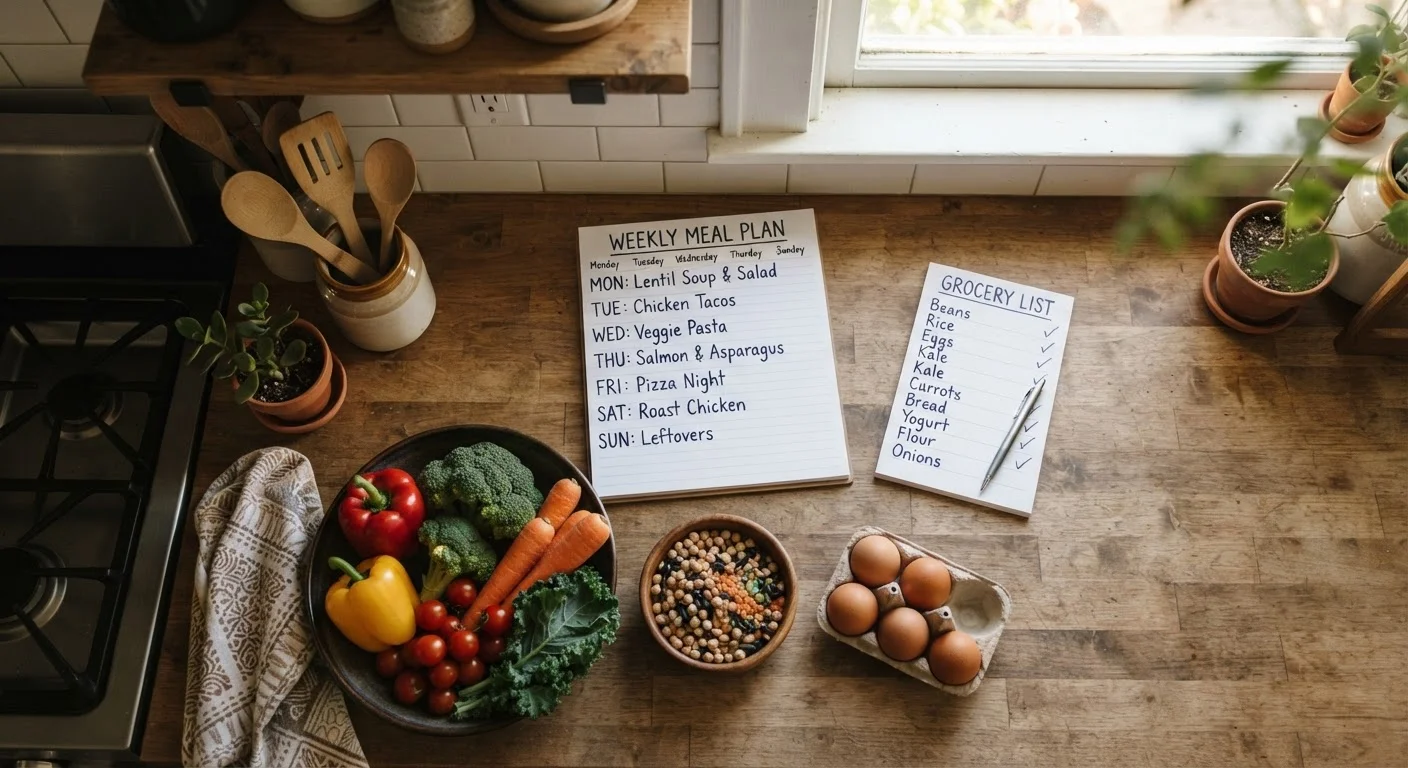 WEEKLY MEAL PLAN
Monday Tuesday Wednerday Thurday Sunday
MON: Lentil Soup & Salad
TUE: Chicken Tacos
WED: Veggie Pasta
THU: Salmon & Asparagus
FRI: Pizza Night
SAT: Roast Chicken
SUN: Leftovers
GROCERY LIST
Beans
Rice
Eggs
Kale
Kale
Currots
Bread
Yogurt
Flour
Onions